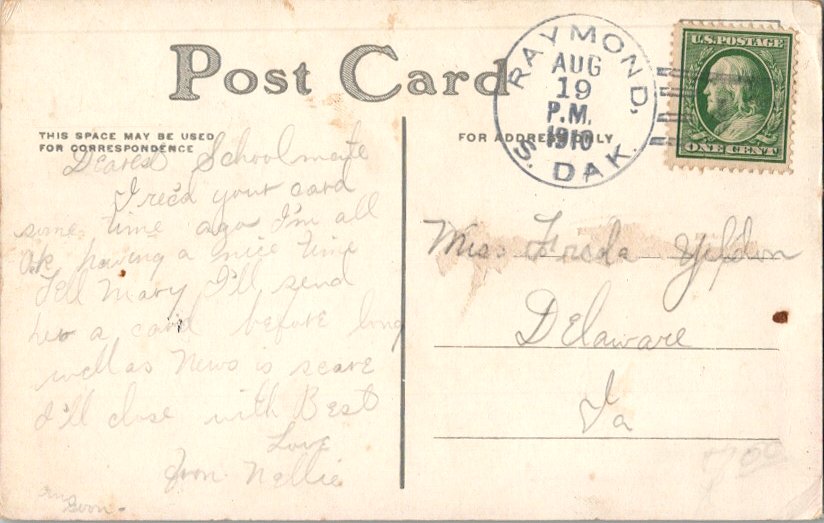 Post Card
RAYMOND,
AUG
19
P.M.
1910
S. DAK.
U.S. POSTAGE
ONE CENT
THIS SPACE MAY BE USED
FOR CORRESPONDENCE
FOR ADDRESS ONLY
Dearest Schoolmate
I rec'd your card
some time ago I'm all
O.K. having a nice time
Tell Mary I'll send
her a card before long
well as News is scare
I'll close with Best
Love
From Nellie
Miss Freda
Delaware
Ia